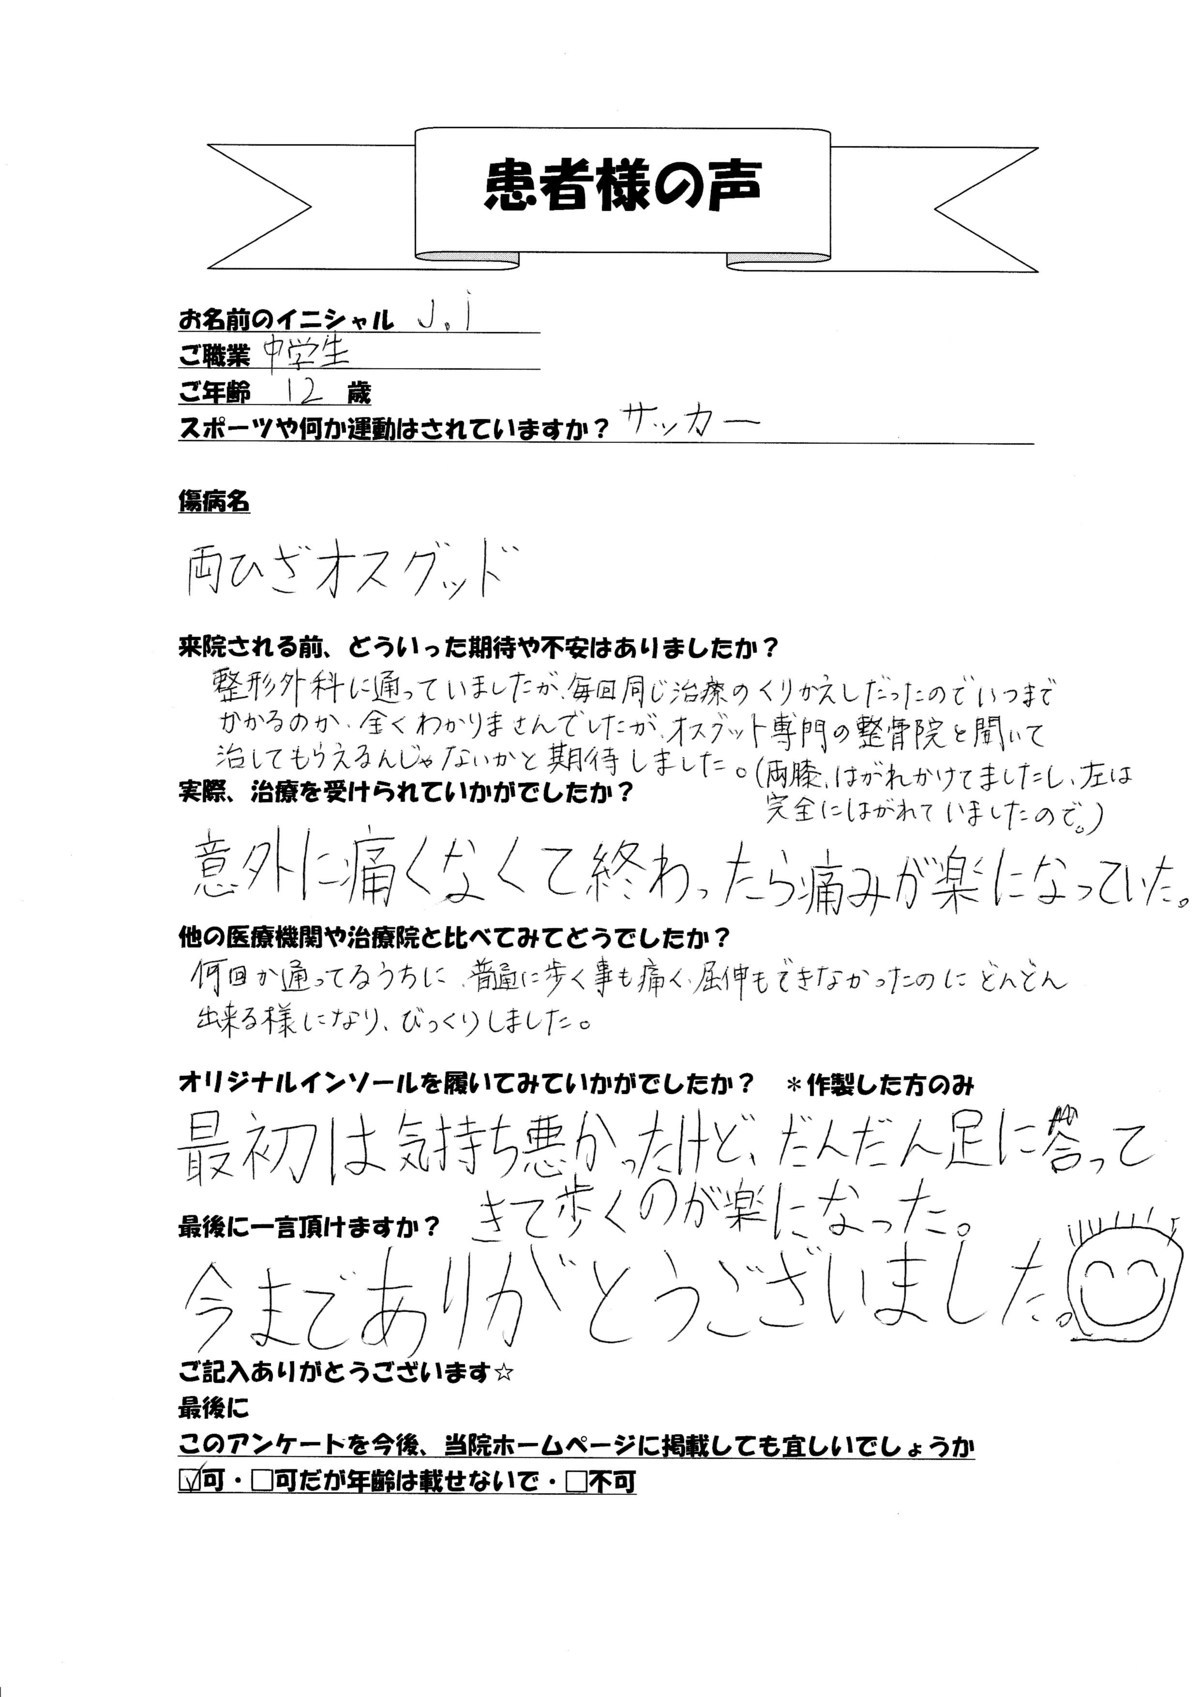 患者様の声
お名前のイニシャル J.i
ご職業 中学生
ご年齢 12 歳
スポーツや何か運動はされていますか? サッカー
傷病名
両ひざオスグッド
来院される前、どういった期待や不安はありましたか?
整形外科に通っていましたが、毎回同じ治療のくりかえしだったのでいつまで
かかるのか、全くわかりませんでしたが、オスグット専門の整骨院と聞いて
治してもらえるんじゃないかと期待しました。(両膝、はがれかけてましたし、左は
完全にはがれていましたので。)
実際、治療を受けられていかがでしたか?
意外に痛くなくて終わったら痛みが楽になっていた。
他の医療機関や治療院と比べてみてどうでしたか?
何回か通ってるうちに、普通に歩く事も痛く、屈伸もできなかったのにどんどん
出来る様になり、びっくりしました。
オリジナルインソールを履いてみていかがでしたか? *作製した方のみ
最初は気持ち悪かったけど、だんだん足に合って
きて歩くのが楽になった。
最後に一言頂けますか?
今までありがとうございました。
ご記入ありがとうございます☆
最後に
このアンケートを今後、当院ホームページに掲載しても宜しいでしょうか
☑可・□可だが年齢は載せないで・□不可